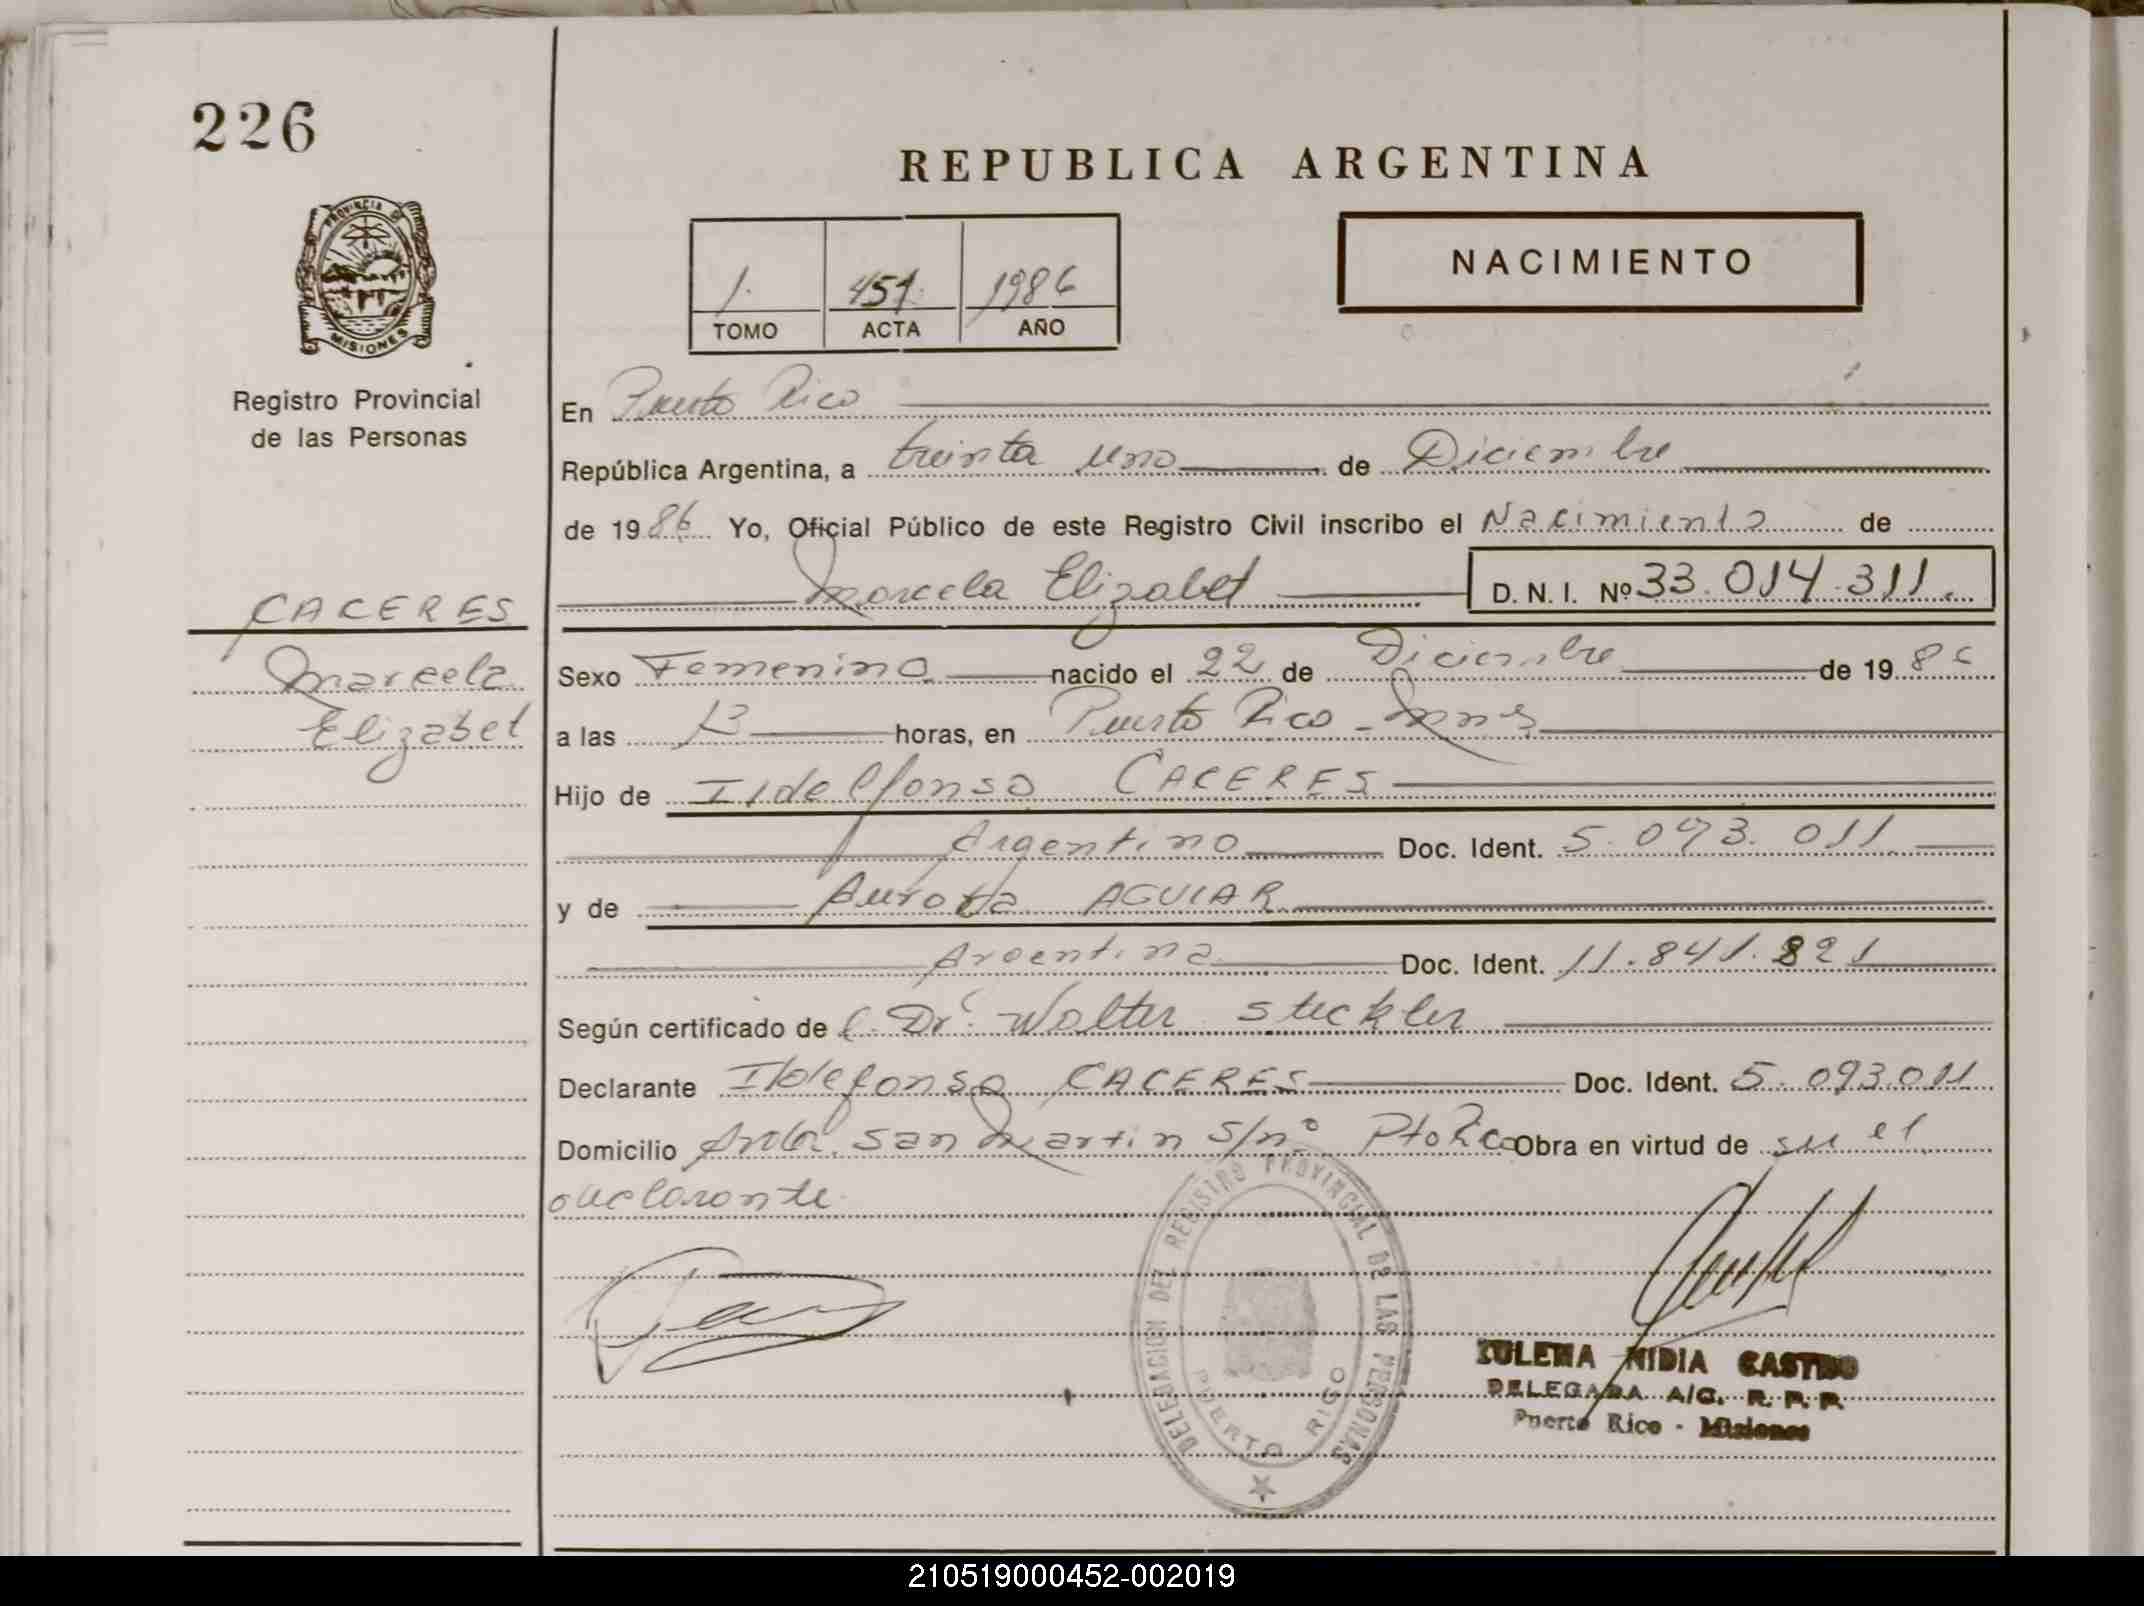 226
REPUBLICA ARGENTINA
NACIMIENTO
1. 451 1986
TOMO ACTA AÑO
PROVINCIA DE
MISIONES
Registro Provincial
de las Personas
En Puerto Rico
República Argentina, a treinta uno de Diciembre
de 1986 Yo, Oficial Público de este Registro Civil inscribo el Nacimiento de
Marcela Elizabet D. N. I. Nº 33.014.311.
CACERES
Marcela
Elizabet
Sexo Femenino nacido el 22 de Diciembre de 1986
a las 13 horas, en Puerto Rico - Mnes
Hijo de Ildelfonso CACERES
Argentino Doc. Ident. 5.093.011
y de Aurora AGUIAR
Argentina Doc. Ident. 11.841.821
Según certificado de l. Dr. Wolter Steckler
Declarante Ildefonso CACERES Doc. Ident. 5.093.011
Domicilio Avda. San Martin s/nº Pto Rico Obra en virtud de su el
declarante
DELEGACION DEL REGISTRO PROVINCIAL DE LAS PERSONAS
PUERTO RICO
ZULEMA NIDIA CASTRO
DELEGADA A/C. R. P. P.
Puerto Rico - Misiones
210519000452-002019